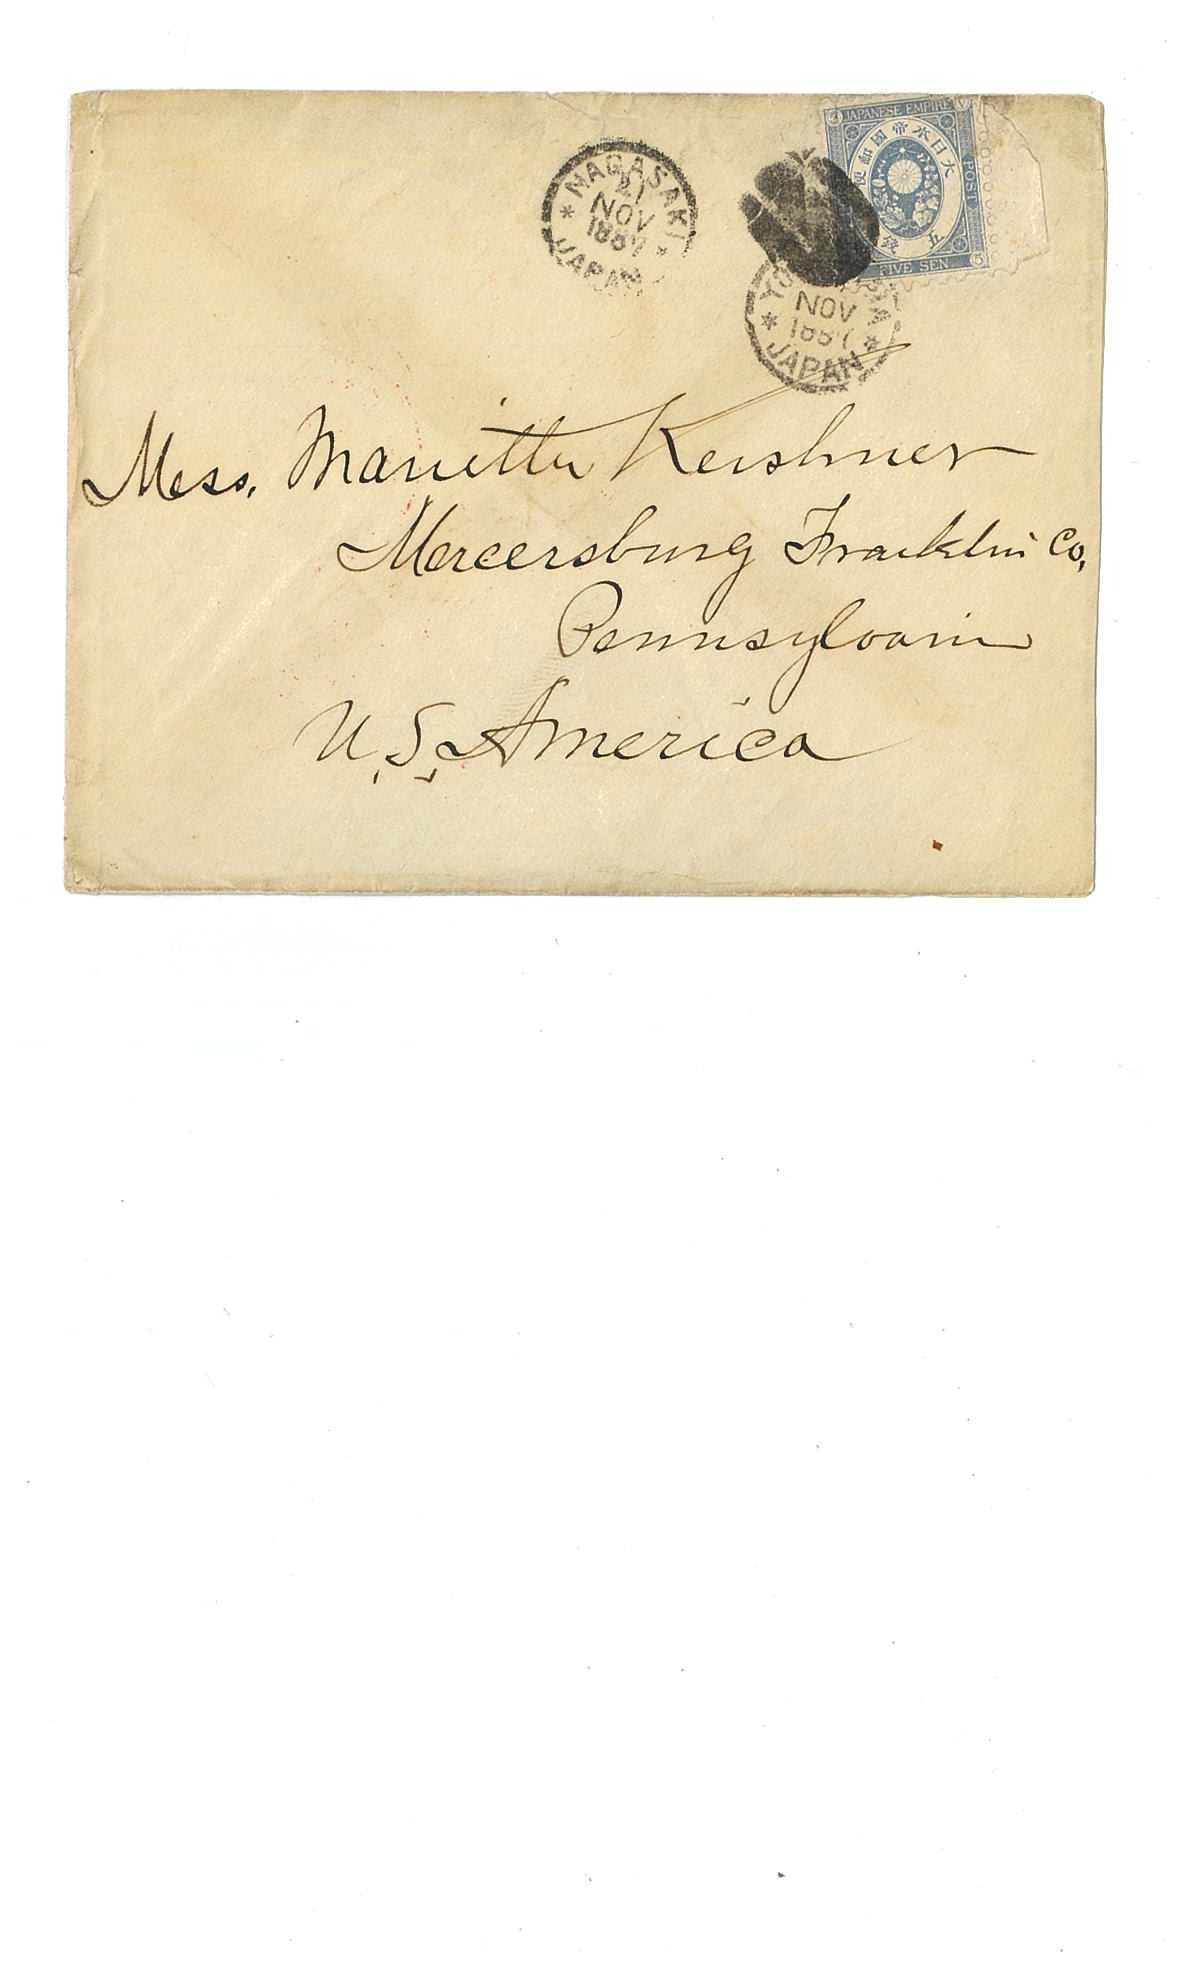 JAPANESE EMPIRE
POST
大日本帝國郵便
五錢
FIVE SEN
NAGASAKI
21
NOV
1887
JAPAN
NOV
1887
JAPAN
Mess. Marietta Kershner
Mercersburg Franklin Co.
Pennsylvania
U.S. America